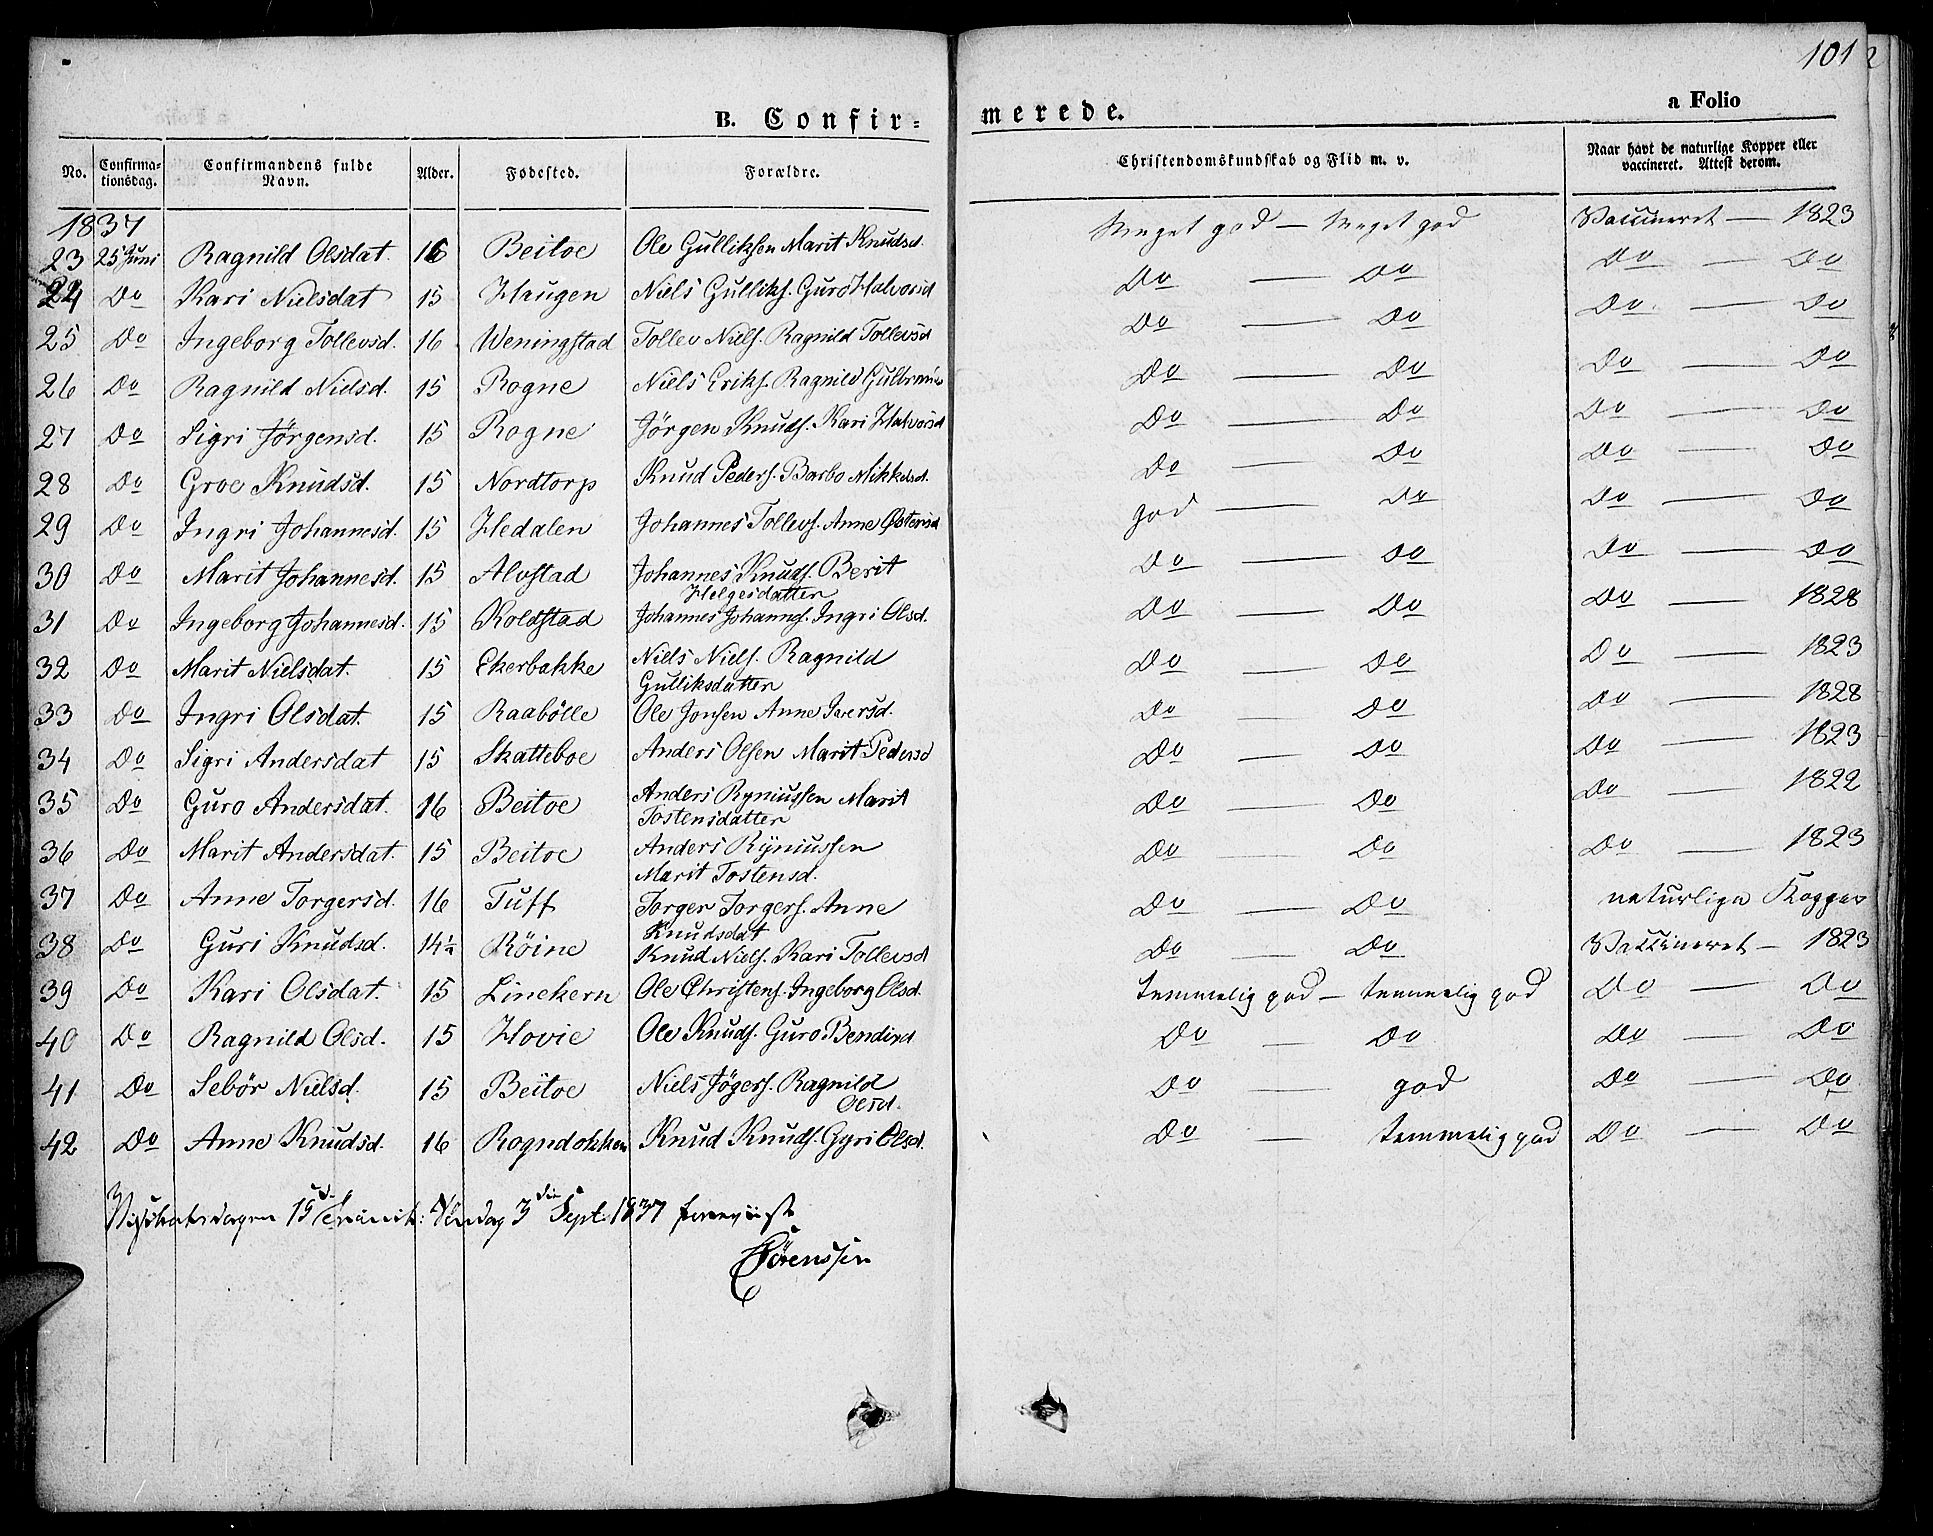 101
B. Confir-
merede.
a Folio
No. Confirmationsdag. Confirmandens fulde Navn. Alder. Fødested. Forældre. Christendomskundskab og Flid m. v. Naar havt de naturlige Kopper eller vaccineret. Attest derom.
1837
23 25 Juni Ragnild Olsdat. 16 Beitoe Ole Gulliksen Marit Knudsd. Meget god — Meget god Vaccineret — 1823
24 Do Kari Nielsdat 15 Haugen Niels Gulliks. Guro Halvorsd Do — Do Do — Do
25 Do Ingeborg Tollevsd. 16 Weningstad Tollev Niels. Ragnild Tollevsd Do — Do Do — Do
26 Do Ragnild Nielsd. 15 Rogne Niels Eriks. Ragnild Do — Do Do — Do
27 Do Sigri Jörgensd. 15 Rogne Jörgen Knuds. Kari Halvorsd Do — Do Do — Do
28 Do Groe Knudsd. 15 Nordtorp Knud Peders. Barbo Mikkelsd. Do — Do Do — Do
29 Do Ingri Johannesd. 15 Hedalen Johannes Tollevs. Anne Østensd god — Do Do — Do
30 Do Marit Johannesd. 15 Alvstad Johannes Knuds. Berit Do — Do Do — Do
Helgesdatter
31 Do Ingeborg Johannesd. 15 Roldstad Johannes Johannes. Ingri Olsd. Do — Do Do — 1828
32 Do Marit Nielsdat. 15 Ekerbakke Niels Niels. Ragnild Do — Do Do — 1823
Gulliksdatter
33 Do Ingri Olsdat. 15 Raabölle Ole Jonsen Anne Iversd. Do — Do Do — 1828
34 Do Sigri Andersdat 15 Skatteboe Anders Olsen Marit Pedersd Do — Do Do — 1823
35 Do Guro Andersdat. 16 Beitoe Anders Ryniussen Marit Do — Do Do — 1822
Tostensdatter
36 Do Marit Andersdat. 15 Beitoe Anders Ryniussen Do — Do Do — 1823
Marit Tostensd.
37 Do Anne Torgersd. 16 Tuff Torger Torgers. Anne Do — Do naturlige Kopper
Knudsdat
38 Do Guri Knudsd. 14½ Röine Knud Niels. Kari Tollevsd Do — Do Vaccineret — 1823
39 Do Kari Olsdat. 15 Linekern Ole Christens. Ingeborg Olsd. temmelig god — temmelig god Do — Do
40 Do Ragnild Olsd. 15 Hovie Ole Knuds. Guro Do — Do Do — Do
41 Do Sebör Nielsd. 15 Beitoe Niels Jögers. Ragnild Do — god Do — Do
Olsd.
42 Do Anne Knudsd. 16 Rogndokken Knud Knuds. Gyri Olsd. Do — temmelig god Do — Do
15de Søndag 3die Sept. 1837
Sörenssen